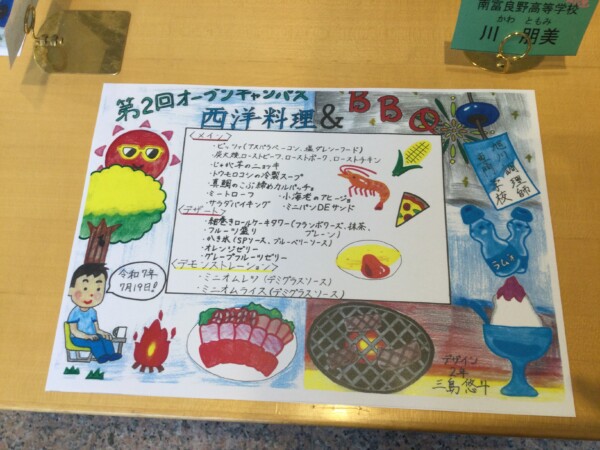 南富良野高等学校
かわ ともみ
川 朋美
第2回オープンキャンパス
西洋料理&BBQ
<メイン>
・ピッツァ(アスパラベーコン、塩ダレシーフード)
・炭火焼ローストビーフ、ローストポーク、ローストチキン
・じゃが芋のニョッキ
・トウモロコシの冷製スープ
・真鯛のこぶ締めカルパッチョ
・ミートローフ ・小海老のアヒージョ
・サラダバイキング ・ミニパンDEサンド
<デザート>
・細巻きロールケーキタワー(フランボワーズ、抹茶、
プレーン)
・フルーツ盛り
・かき氷(SPソース、ブルーベリーソース)
・オレンジゼリー
・グレープフルーツゼリー
<デモンストレーション>
・ミニオムレツ(デミグラスソース)
・ミニオムライス(デミグラスソース)
調理師
学校
ラムネ
令和7年
7月19日!!
デザイン
2年
三島 悠斗